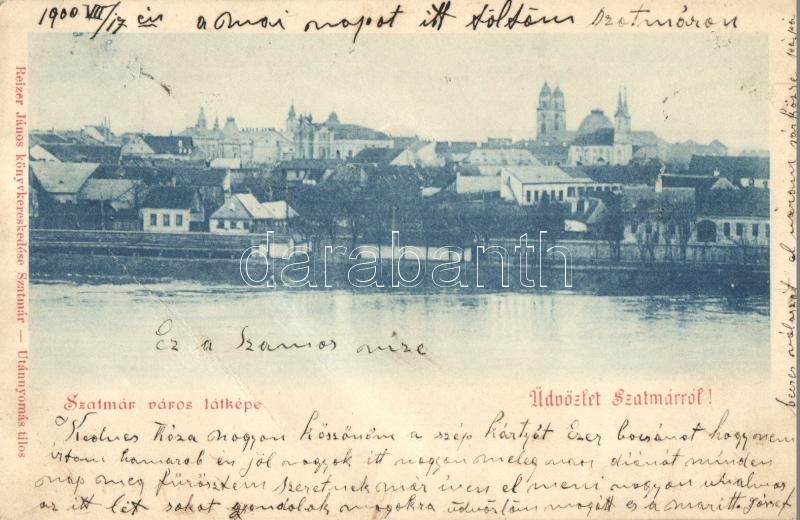 1900 VII/17 én a mai napot itt töltöm Szatmáron
Reizer János könyvkereskedése Szatmár — Utánnyomás tilos
darabanth
Ez a Szamos vize
Szatmár város látképe
Üdvözlet Szatmárról!
Kedves Róza nagyon köszönöm a szép kártyát Ezer bocsánat hogy nem
írtam hamarab én jól vagyok itt nagyon meleg van minden
nap meg fürösztem szeretnek már el meni nagyon unalmas
az itt lét sokat gondolok magokra üdvözlöm magát és a maritt. József
becses válaszát el várom